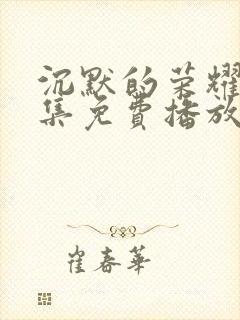 沉默的荣耀
集免费播放
崔春华